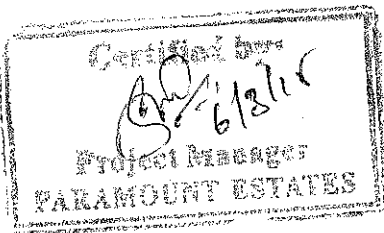 Certified by:
6/8/15
Project Manager
PARAMOUNT ESTATES